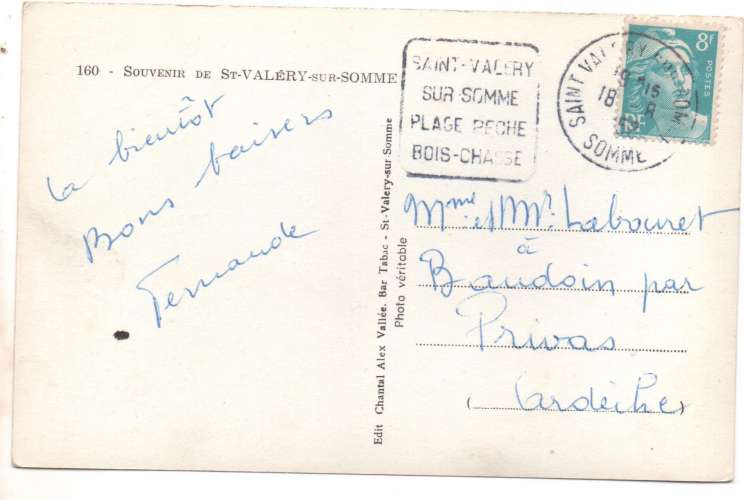 160 - SOUVENIR DE ST-VALÉRY-SUR-SOMME
a bientôt
Bons baisers
Fernande
Edit Chantal Alex Vallée. Bar Tabac - St-Valery-sur Somme
Photo véritable
SAINT-VALERY
SUR-SOMME
PLAGE PECHE
BOIS-CHASSE
SAINT VALERY SUR SOMME
18
SOMME
8F
POSTES
RF
Mme et Mr. Labouret
à
Baudoin par
Privas
(Ardèche)